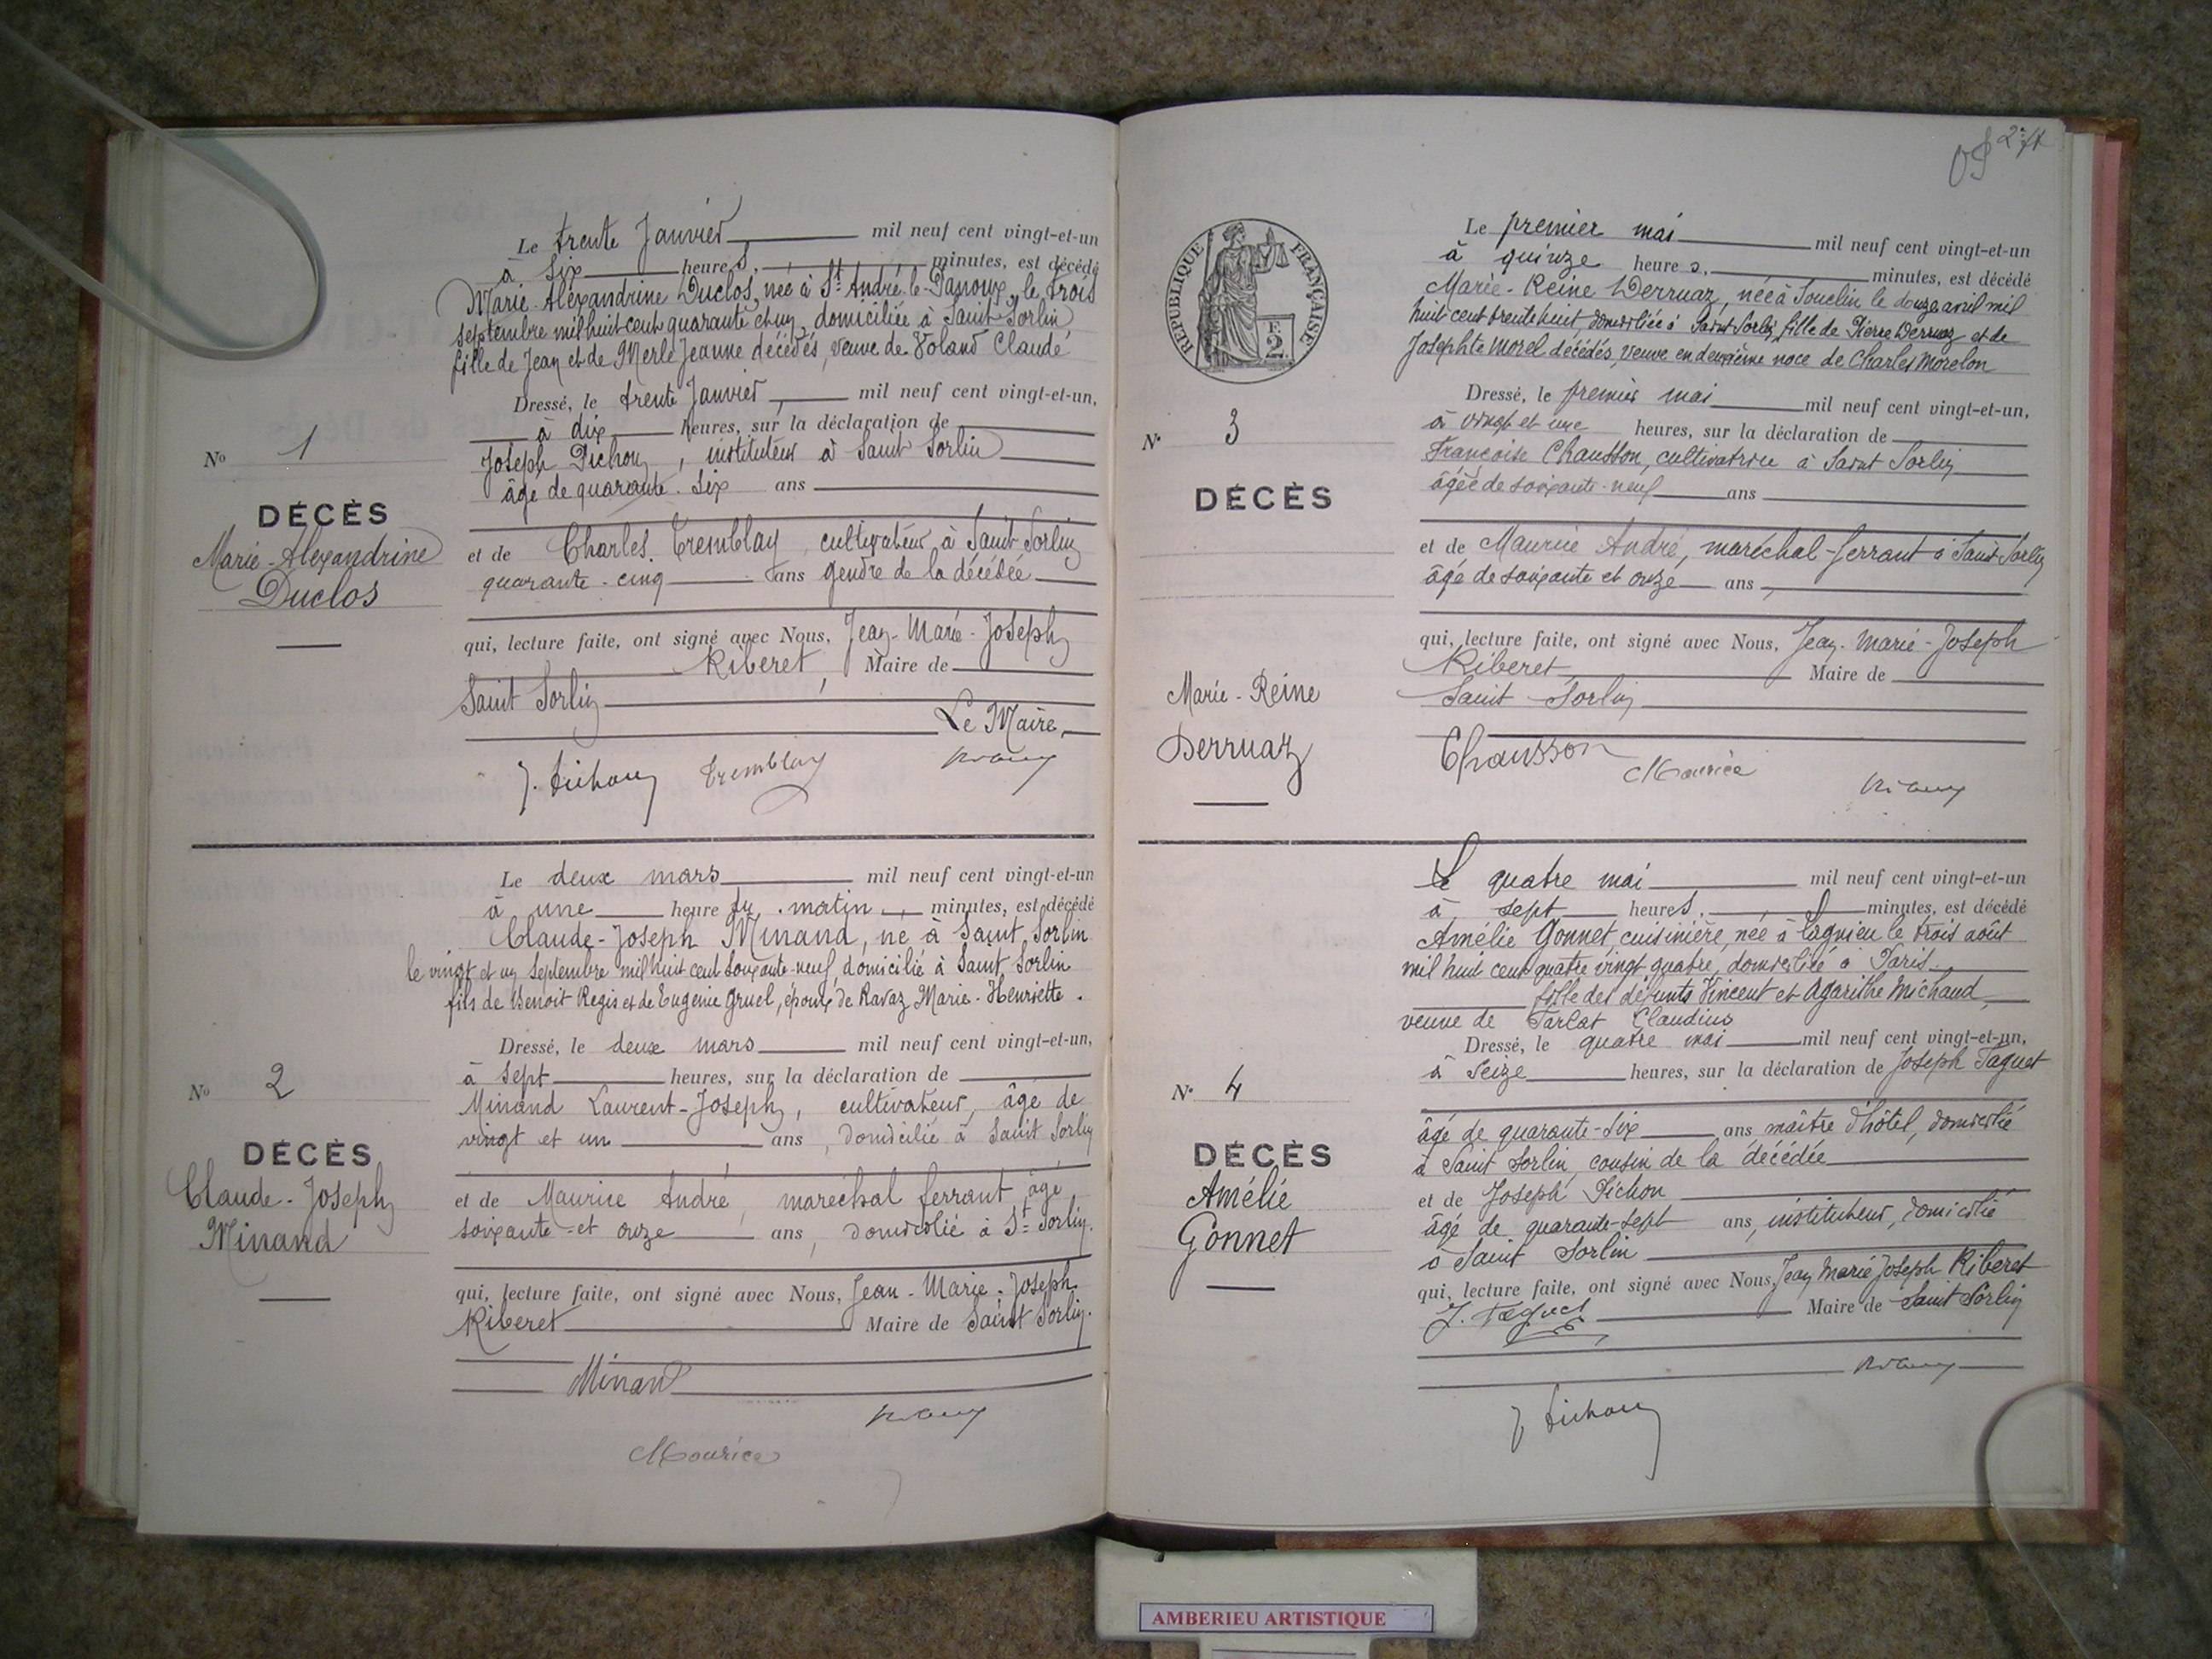 Le trente Janvier mil neuf cent vingt-et-un
à six heures, minutes, est décédé
Marie-Alexandrine Duclos, née à St André-le-Panoux, le trois
septembre mil huit cent quarante et un, domiciliée à Saint Sorlin
fille de Jean et de Merle Jeanne décédés, veuve de Voland Claude
Dressé, le trente Janvier, mil neuf cent vingt-et-un,
à dix heures, sur la déclaration de
Joseph Pichon, instituteur à Saint Sorlin
âgé de quarante-six ans
No 1
DÉCÈS
Marie-Alexandrine
Duclos
et de Charles Tremblay cultivateur à Saint Sorlin
quarante-cinq ans gendre de la décédée
qui, lecture faite, ont signé avec Nous, Jean-Marie-Joseph
Riberet, Maire de
Saint Sorlin
Le Maire,
J. Pichon Tremblay
Le deux mars mil neuf cent vingt-et-un
à une heure du matin, minutes, est décédé
Claude-Joseph Minand, né à Saint Sorlin
le vingt et un septembre mil huit cent soixante-neuf, domicilié à Saint Sorlin
fils de Benoit Regis et de Eugenie Gruel, époux de Ravaz Marie-Henriette.
Dressé, le deux mars mil neuf cent vingt-et-un,
à sept heures, sur la déclaration de
Minand Laurent-Joseph, cultivateur, âgé de
vingt et un ans, domicilié à Saint Sorlin
No 2
DÉCÈS
Claude-Joseph
Minand
et de Maurice André, maréchal ferrant âgé
soixante-et onze ans, domicilié à St Sorlin.
qui, lecture faite, ont signé avec Nous, Jean-Marie-Joseph
Riberet Maire de Saint Sorlin.
Minand
Maurice
2
RÉPUBLIQUE FRANÇAISE
F.
2
Le premier mai mil neuf cent vingt-et-un
à quinze heures, minutes, est décédé
Marie-Reine Derruaz, née à Souclin le douze avril mil
huit cent trente huit domiciliée à Saint Sorlin, fille de Pierre Derruaz et de
Josephte Morel décédés, veuve en deuxième noce de Charles Morelon
Dressé, le premier mai mil neuf cent vingt-et-un,
à vingt et une heures, sur la déclaration de
Françoise Chausson, cultivatrice à Saint Sorlin
âgée de soixante-neuf ans
No 3
DÉCÈS
Marie-Reine
Derruaz
et de Maurice André, maréchal-ferrant à Saint-Sorlin
âgé de soixante et onze ans,
qui, lecture faite, ont signé avec Nous, Jean-Marie-Joseph
Riberet Maire de
Saint-Sorlin
Chausson Maurice
Le quatre mai mil neuf cent vingt-et-un
à sept heures, minutes, est décédé
Amélie Gonnet, cuisinière, née à Lagnieu le trois août
mil huit cent quatre vingt quatre, domiciliée à Paris
fille des défunts Vincent et Agarithe Michaud,
veuve de Tarlat Claudius
Dressé, le quatre mai mil neuf cent vingt-et-un,
à seize heures, sur la déclaration de Joseph Paquet
âgé de quarante-six ans maître d'hôtel, domicilié
à Saint Sorlin, cousin de la décédée
No 4
DÉCÈS
Amélie
Gonnet
et de Joseph Pichon
âgé de quarante-sept ans, instituteur, domicilié
à Saint Sorlin
qui, lecture faite, ont signé avec Nous, Jean Marie Joseph Riberet
J. Paquet Maire de Saint Sorlin
J Pichon
AMBERIEU ARTISTIQUE